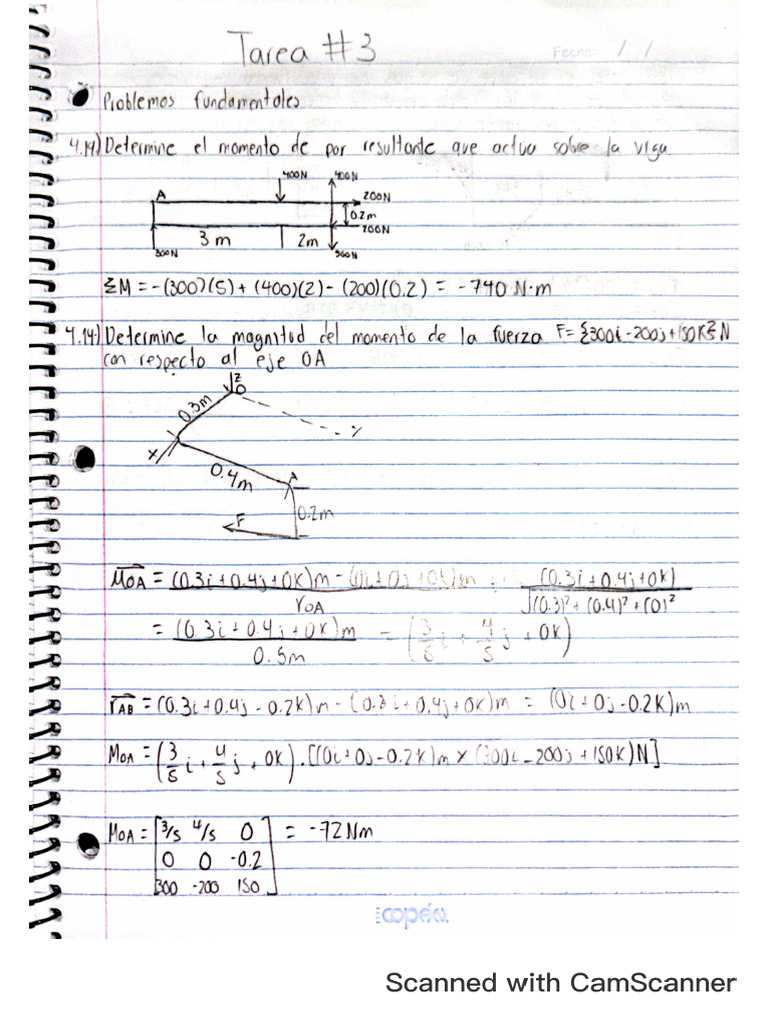 Tarea #3
Fecha: / /
Problemas fundamentales
4.19) Determine el momento de par resultante que actua sobre la viga.
400N 400N
A 200N
0.2m
200N
3m 2m
300N 300N
ΣM = -(300)(5) + (400)(2) - (200)(0.2) = -740 N·m
4.14) Determine la magnitud del momento de la fuerza F={300i-200j+150K} N
con respecto al eje OA
Z
O
0.3m
y
X
0.4m A
0.2m
F
MOA = (0.3i+0.4j+0K)m - (0i+0j+0K)m = (0.3i+0.4j+0K)
rOA √(0.3)²+(0.4)²+(0)²
= (0.3i+0.4j+0K)m = (3/5 i + 4/5 j + 0K)
0.5m
rAB = (0.3i+0.4j-0.2K)m - (0.3i+0.4j+0K)m = (0i+0j-0.2K)m
MOA = (3/5 i + 4/5 j + 0K)·[(0i+0j-0.2K)m x (300i-200j+150K)N]
MOA = [3/5 4/5 0] = -72Nm
0 0 -0.2
300 -200 150
copéa
Scanned with CamScanner